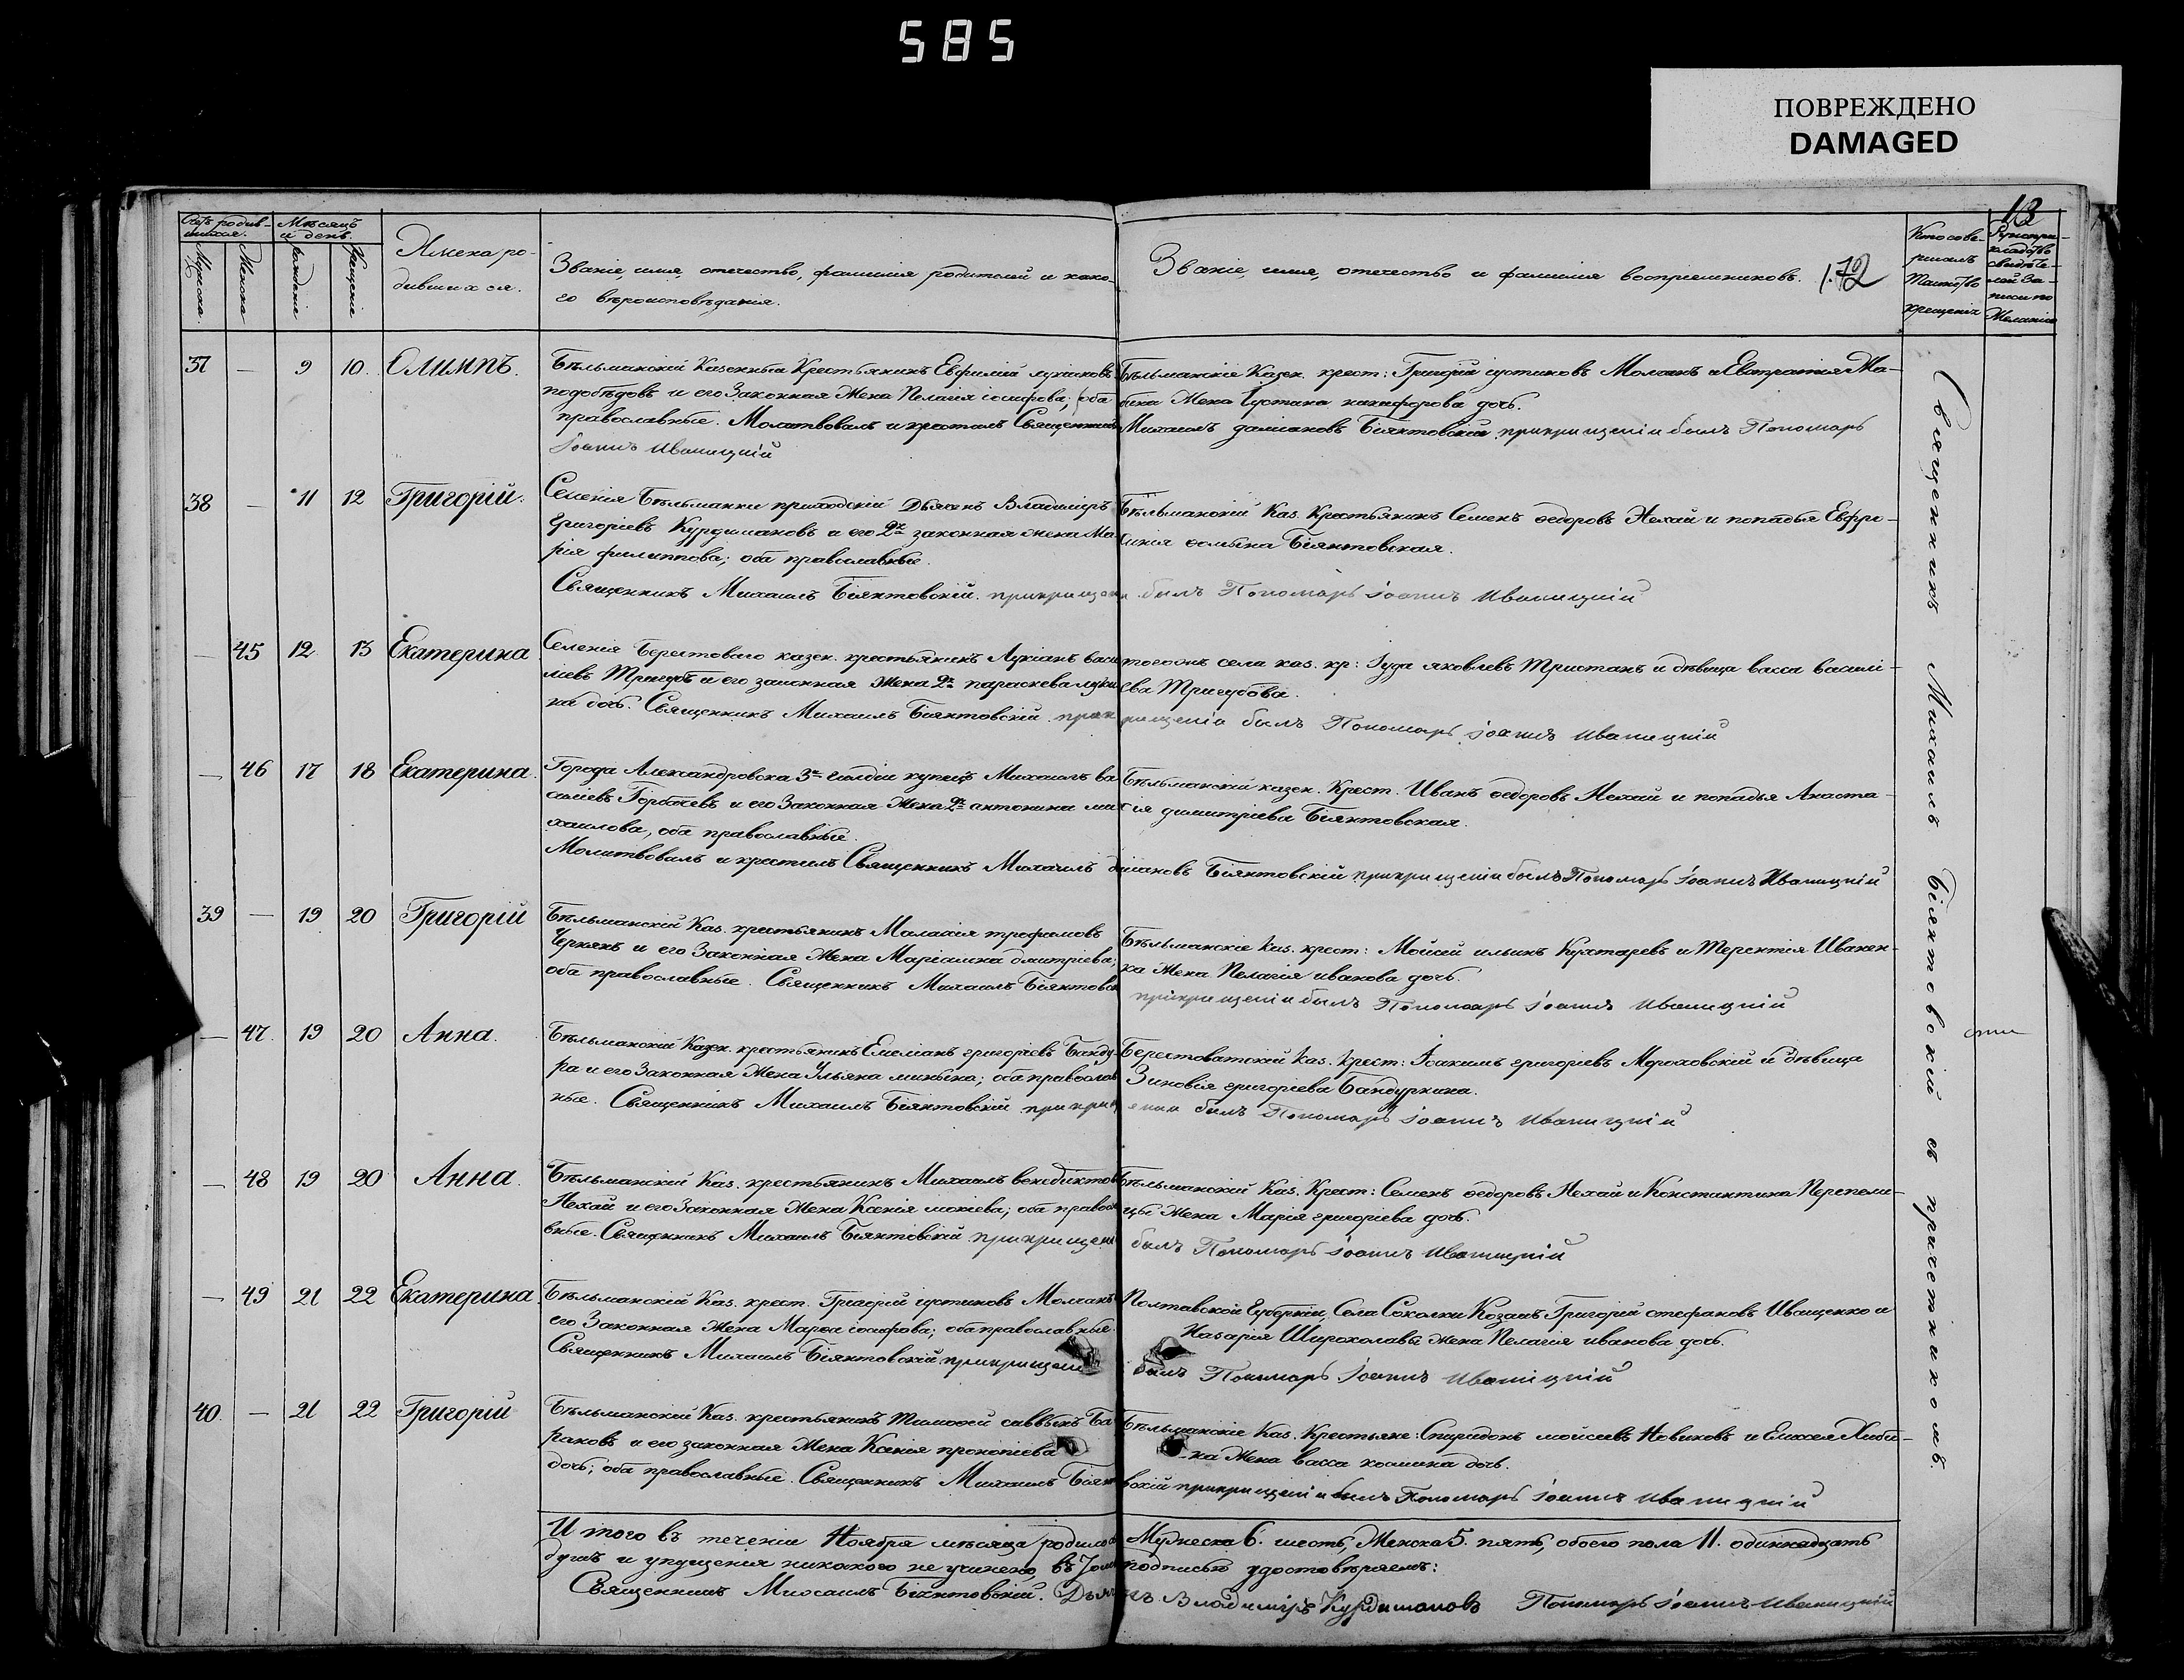 585
ПОВРЕЖДЕНО
DAMAGED
13
Счетъ родив-
шихся.
Мужеска.
Женска
Мѣсяцъ
и день.
рожденія
Крещенія
Имена ро-
дившихся.
Званіе, имя, отечество, фамилія родителей и како-
го вѣроисповѣданія.
Званіе, имя, отечество и фамилія воспріемниковъ.
172
Кто сове-
ршалъ
Таинство
крещенія
Рукопри-
кладство
свидѣте-
лей за-
писи по
Желанію
37 — 9 10. Олимпъ.
Бѣльманскій Казенный Крестьянинъ Евфимій
подобѣдовъ и его Законная Жена Пелагія іосифова; оба
православные. Молитвовалъ и крестилъ Священникъ
Іоаннъ Иваницкій
Бѣльманскіе Казен. крест: Григорій іустиновъ Молчанъ и
Жена Іустина никифорова дочь.
Михаилъ даміановъ Біянтовскій прикрищеніи былъ Пономарь
38 — 11 12 Григорій.
Селенія Бѣльманки приходскій Дьячекъ Владиміръ
Григоріевъ Курдимановъ и его 2я законная жена Ма-
рія филиппова; оба православные.
Священникъ Михаилъ Біянтовскій. прикрищени
Бѣльманскій Каз. Крестьянинъ Семенъ ѳедоровъ Нехай и попадья Евфро-
синія ѳомына Біянтовская.
былъ Пономарь іоаннъ Иваницкій
— 45 12 13 Екатерина
Селенія Берестоваго казен. крестьянинъ Лукіанъ васи
ліевъ Тригубъ и его законная Жена 2я параскева
на дочь. Священникъ Михаилъ Біянтовскій. прик
тогожъ села каз. кр: Іуда яковлевъ Тристанъ и дѣвица васса василі-
ева Тригубова.
рищеніи былъ Пономарь іоаннъ Иваницкій
— 46 17 18 Екатерина.
Города Александровска 3й гилдіи купецъ Михаилъ ва
силіевъ Горбачевъ и его Законная Жена 2я антонина ми
хаилова, оба православные.
Молитвовалъ и крестилъ Священникъ Михаилъ
Бѣльманскій казен. Крест. Иванъ ѳедоровъ Нехай и попадья Анаста-
сія димитріева Біянтовская.
даміановъ Біянтовскій прикрищеніи былъ Пономарь іоаннъ Иваницкій
39 — 19 20 Григорій
Бѣльманскій Каз. крестьянинъ Малахія трофимовъ
Чернякъ и его Законная Жена Маріамна дмитріева;
оба православные. Священникъ Михаилъ Біянтовск
Бѣльманскіе Каз. крест: Мойсей ильинъ Кухтаревъ и Терентія Иванен-
ка Жена Пелагія иванова дочь.
прикрищеніи былъ Пономарь іоаннъ Иваницкій
— 47. 19 20 Анна.
Бѣльманскій Казен. крестьянинъ Емеліанъ григоріевъ Банду-
ра и его Законная Жена Ульяна минына; оба православ
ные. Священникъ Михаилъ Біянтовскій прикрищ
Берестоватскій Каз. Крест: Іоакимъ григоріевъ Мороховскій и дѣвица
Зиновія григоріева Бандуркина.
еніи былъ Пономарь іоаннъ Иваницкій
— 48 19 20 Анна.
Бѣльманскій Каз. крестьянинъ Михаилъ венедиктов
Нехай и его Законная Жена Ксенія мокіева; оба правосл
вные. Священникъ Михаилъ Біянтовскій прикрищени
Бѣльманскій Каз. Крест: Семенъ ѳедоровъ Нехай и Константина Перепели-
цы Жена Марія григоріева дочь.
былъ Пономарь іоаннъ Иваницкій
— 49 21 22 Екатерина
Бѣльманскій Каз. крест. Григорій іустиновъ Молчанъ
его Законная Жена Марѳа іосифова; оба православные.
Священникъ Михаилъ Біянтовскій прикрищени
Полтавской Губерніи, Села Соколки Козакъ Григорій стефановъ Иващенко и
Назарія Широколавы жена Пелагія иванова дочь.
былъ Пономарь іоаннъ Иваницкій
40. — 21 22 Григорій
Бѣльманскій Каз. крестьянинъ Тимоѳей саввынъ Ба
рановъ и его законная Жена Ксенія прокопіева
дочь; оба православные. Священникъ Михаилъ Біянто
Бѣльманскіе Каз. Крестьяне: Спиридонъ мойсеевъ Новиковъ и Елисея Хиби-
на Жена васса космина дочь.
вскій прикрищеніи былъ Пономарь іоаннъ Иваницкій
Итого въ теченіи Ноября мѣсяца родилось
душъ и упущенія никакого не учинено, въ томъ
Священникъ Михаилъ Біянтовскій. Дьяч
Мужеска 6. шесть, Женска 5. пять, обоего пола 11. одиннадцать
подписью удостовѣряемъ:
къ Владиміръ Курдимановъ Пономарь іоаннъ Иваницкій
Священникъ Михаилъ Біянтовскій съ причетникомъ.